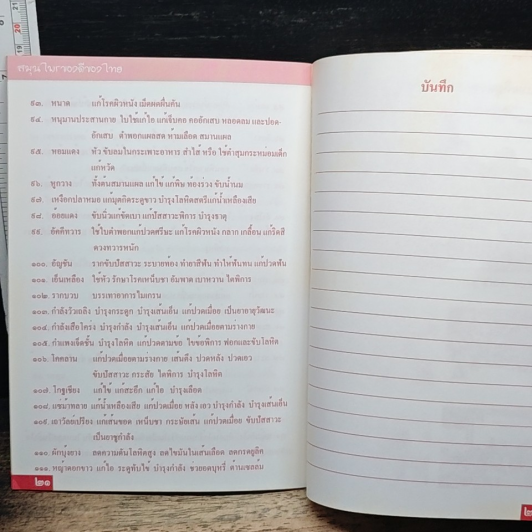 สมุนไพรของดีของไทย
๙๓. หนาด แก้โรคผิวหนัง เม็ดผดผื่นคัน
๙๔. หนุมานประสานกาย ใบใช้แก้ไอ แก้เจ็บคอ คออักเสบ หลอดลม และปอด-
อักเสบ ตำพอกแผลสด ห้ามเลือด สมานแผล
๙๕. หอมแดง หัว ขับลมในกระเพาะอาหาร ลำไส้ หรือ ใช้ตำสุมกระหม่อมเด็ก
แก้หวัด
๙๖. หูกวาง ทั้งต้นสมานแผล แก้ไข้ แก้พิษ ท้องร่วง ขับน้ำนม
๙๗. เหงือกปลาหมอ แก้มุตกิดระดูขาว บำรุงโลหิตสตรีแก้น้ำเหลืองเสีย
๙๘. อ้อยแดง ขับนิ่วแก้ขัดเบา แก้ปัสสาวะพิการ บำรุงธาตุ
๙๙. อัคคีทวาร ใช้ใบตำพอกแก้ปวดศรีษะ แก้โรคผิวหนัง กลาก เกลื้อน แก้ริดสี
ดวงทวารหนัก
๑๐๐. อัญชัน รากขับปัสสาวะ ระบายท้อง ทำยาสีฟัน ทำให้ฟันทน แก้ปวดฟัน
๑๐๑. เอ็นเหลือง ใช้หัว รักษาโรคเหน็บชา อัมพาต เบาหวาน ไตพิการ
๑๐๒. รากบวบ บรรเทาอาการไมเกรน
๑๐๓. กำลังวัวเถลิง บำรุงกระดูก บำรุงเส้นเอ็น แก้ปวดเมื่อย เป็นยาอายุวัฒนะ
๑๐๔. กำลังเสือโคร่ง บำรุงกำลัง บำรุงเส้นเอ็น แก้ปวดเมื่อยตามร่างกาย
๑๐๕. กำแพงเจ็ดชั้น บำรุงโลหิต แก้ปวดตามข้อ ไขข้อพิการ ฟอกและขับโลหิต
๑๐๖. โคคลาน แก้ปวดเมื่อยตามร่างกาย เส้นตึง ปวดหลัง ปวดเอว
ขับปัสสาวะ กระสัย ไตพิการ บำรุงโลหิต
๑๐๗. โกฐเชียง แก้ไข้ แก้สะอึก แก้ไอ บำรุงเลือด
๑๐๘. แซ่ม้าทลาย แก้น้ำเหลืองเสีย แก้ปวดเมื่อย หลัง เอว บำรุงกำลัง บำรุงเส้นเอ็น
๑๐๙. เถาวัลย์เปรียง แก้เส้นขอด เหน็บชา กระษัยเส้น แก้ปวดเมื่อย ขับปัสสาวะ
เป็นยาชูกำลัง
๑๑๐. ผักบุ้งยาง ลดความดันโลหิตสูง ลดไขมันในเส้นเลือด ลดกรดยูลิค
๑๑๑. หญ้าดอกขาว แก้ไอ ระดูทับไข้ บำรุงกำลัง ช่วยอดบุหรี่ ต้านเซลล์ม
๒๑
บันทึก